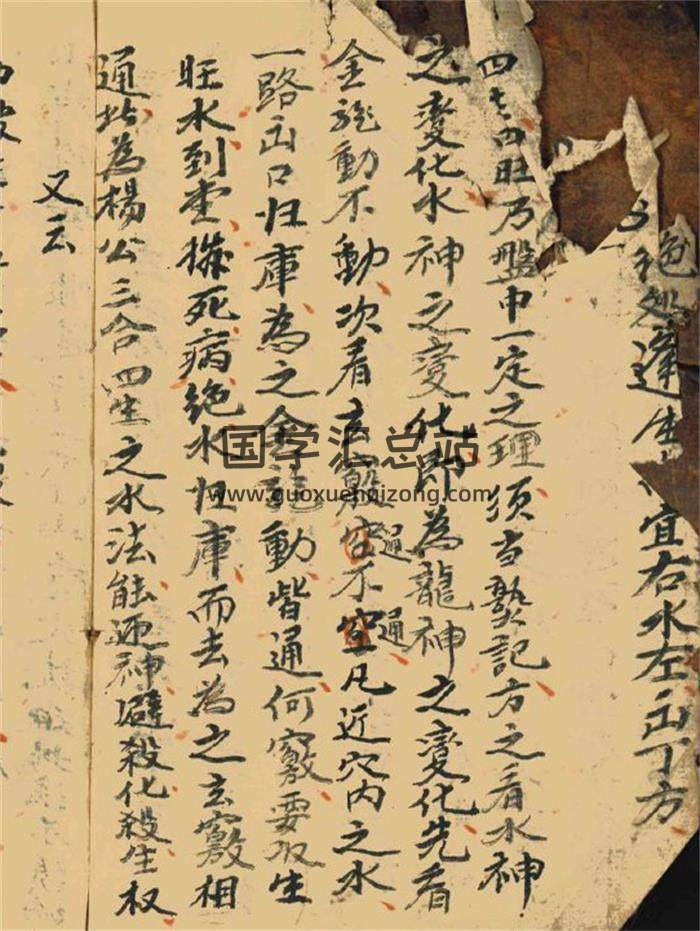 绝处逢生宜右水左出丁方
四生四旺乃盤中一定之理须当熟記方之看水神
之變化水神之变化即為龍神之變化先看
金龍動不動次看玄竅通不通凡近穴内之水
一路出口归庫為之金龍動皆通何竅要取生
旺水到堂撥死病绝水归庫而去為之玄竅相
通皆為楊公三合四生之水法能迎神避殺化殺生权
又云
国学汇总站
www.guoxuehuizong.com